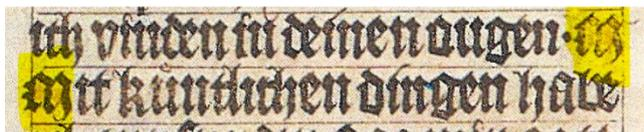 ich vinden in deinen augen· ich
mit kuntlichen dingen habe